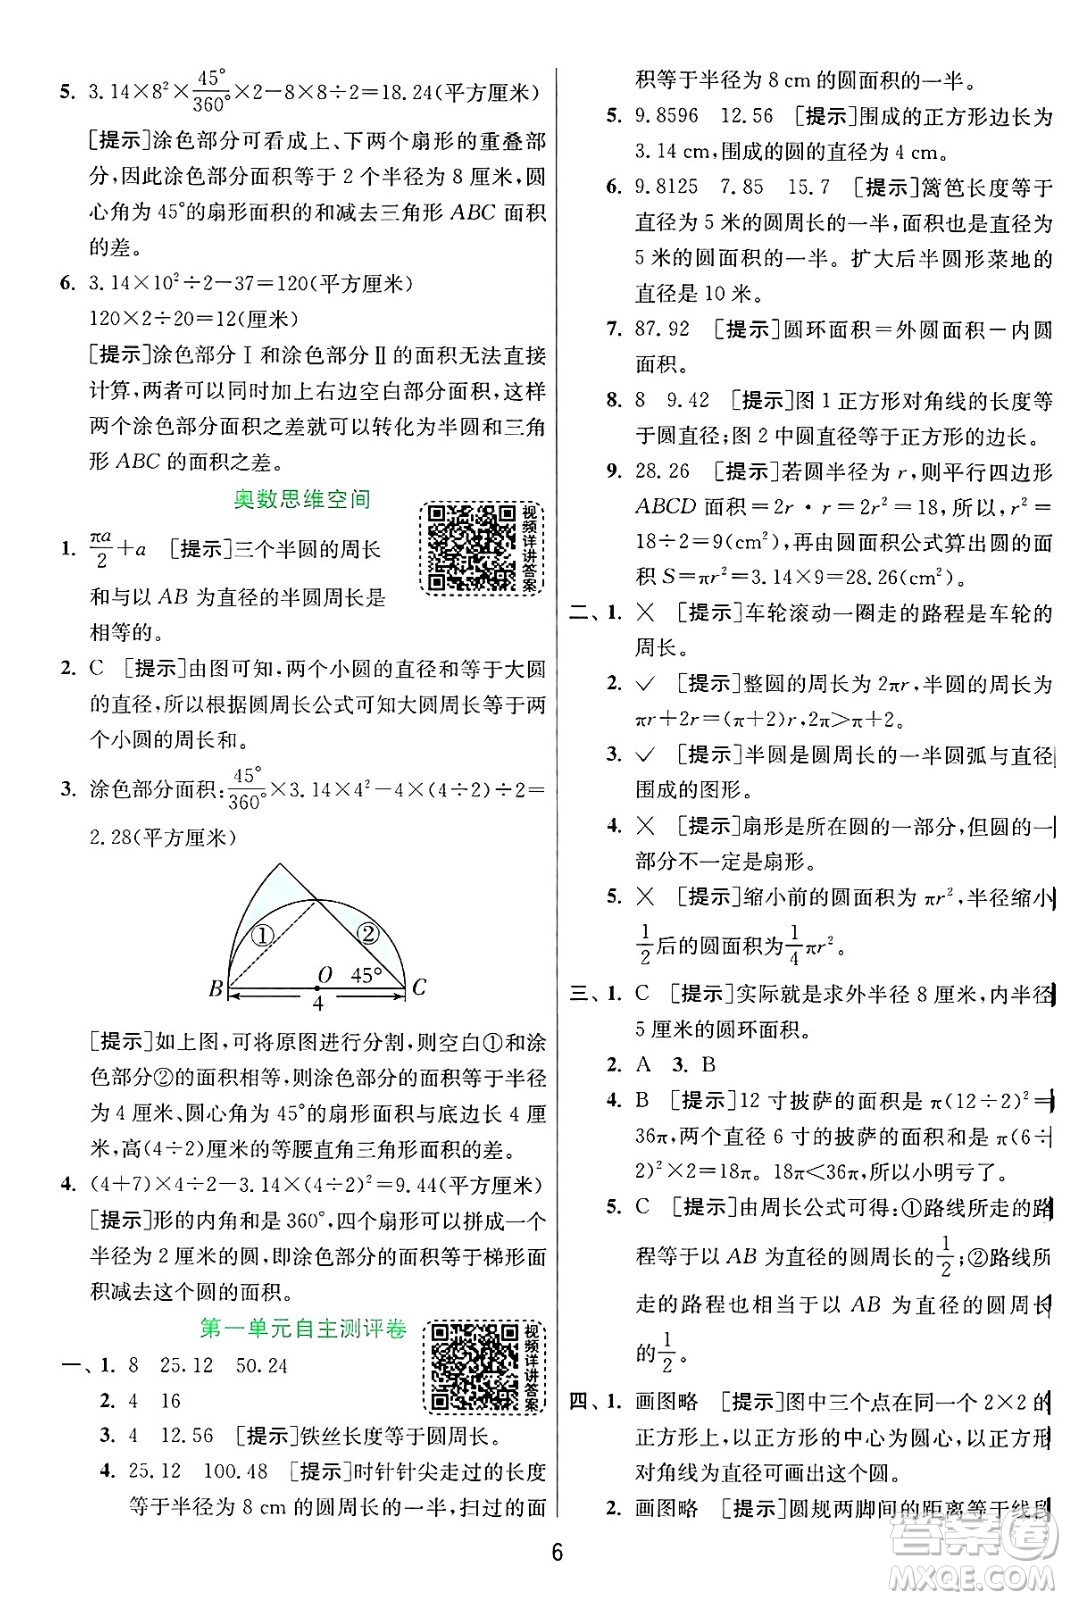 5. 3.14×8²×45°/360°×2−8×8÷2=18.24(平方厘米)
[提示]涂色部分可看成上、下两个扇形的重叠部
分,因此涂色部分面积等于 2 个半径为 8 厘米,圆
心角为 45°的扇形面积的和减去三角形 ABC 面积
的差。
6. 3.14×10²÷2−37=120(平方厘米)
120×2÷20=12(厘米)
[提示]涂色部分Ⅰ和涂色部分Ⅱ的面积无法直接
计算,两者可以同时加上右边空白部分面积,这样
两个涂色部分面积之差就可以转化为半圆和三角
形 ABC 的面积之差。
奥数思维空间
视频详讲答案
1. πa/2+a [提示]三个半圆的周长
和与以 AB 为直径的半圆周长是
相等的。
2. C [提示]由图可知,两个小圆的直径和等于大圆
的直径,所以根据圆周长公式可知大圆周长等于两
个小圆的周长和。
3. 涂色部分面积:45°/360°×3.14×4²−4×(4÷2)÷2=
2.28(平方厘米)
① ②
B O 45° C
4
[提示]如上图,可将原图进行分割,则空白①和涂
色部分②的面积相等,涂色部分的面积等于半径
为 4 厘米,圆心角为 45°的扇形面积与底边长 4 厘
米,高(4÷2)厘米的等腰直角三角形面积之差。
4. (4+7)×4÷2−3.14×(4÷2)²=9.44(平方厘米)
[提示]形的内角和是 360°,四个扇形可以拼成一个
半径为 2 厘米的圆,即涂色部分的面积等于梯形面
积减去这个圆的面积。
第一单元自主测评卷
视频详讲答案
一、1. 8 25.12 50.24
2. 4 16
3. 4 12.56 [提示]铁丝长度等于圆周长。
4. 25.12 100.48 [提示]时针针尖走过的长度
等于半径为 8 cm 的圆周长的一半,扫过的面
积等于半径为 8 cm 的圆面积的一半。
5. 9.8596 12.56 [提示]围成的正方形边长为
3.14 cm,围成的圆的直径为 4 cm。
6. 9.8125 7.85 15.7 [提示]篱笆长度等于
直径为 5 米的圆周长的一半,面积也是直径为
5 米的圆面积的一半。扩大后半圆形菜地的
直径是 10 米。
7. 87.92 [提示]圆环面积=外圆面积−内圆
面积。
8. 8 9.42 [提示]图 1 正方形对角线的长度等
于圆直径;图 2 中圆直径等于正方形的边长。
9. 28.26 [提示]若圆半径为 r,则平行四边形
ABCD 面积=2r·r=2r²=18,所以,r²=
18÷2=9(cm²),再由圆面积公式算出圆的面
积 S=πr²=3.14×9=28.26(cm²)。
二、1. × [提示]车轮滚动一圈走的路程是车轮的
周长。
2. ✓ [提示]整圆的周长为 2πr,半圆的周长为
πr+2r=(π+2)r,2π>π+2。
3. ✓ [提示]半圆是圆周长的一半圆弧与直径
围成的图形。
4. × [提示]扇形是所在圆的一部分,但圆的一
部分不一定是扇形。
5. × [提示]缩小前的圆面积为 πr²,半径缩小
1/2后的圆面积为1/4πr²。
三、1. C [提示]实际就是求外半径 8 厘米,内半径
5 厘米的圆环面积。
2. A 3. B
4. B [提示]12 寸披萨的面积是 π(12÷2)²=
36π,两个直径 6 寸的披萨的面积和是 π(6÷
2)²×2=18π。18π<36π,所以小明亏了。
5. C [提示]由周长公式可得:①路线所走的路
程等于以 AB 为直径的圆周长的1/2;②路线所
走的路程也相当于以 AB 为直径的圆周长的
1/2。
四、1. 画图略 [提示]图中三个点在同一个 2×2 的
正方形上,以正方形的中心为圆心,以正方形
对角线为直径可画出这个圆。
2. 画图略 [提示]圆规两脚间的距离等于线段
6
答案圈
MXQE.COM